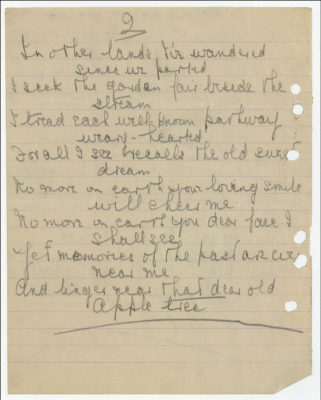 2
In other lands, I've wandered
since we parted
I seek the garden fair beside the
stream
I tread each well known pathway
weary-hearted
For all I see recalls the old sweet
dream
No more on earth your loving smile
will cheer me
No more on earth you dear face I
shall see
Yet memories of the past are ever
near me
And linger near that dear old
apple tree